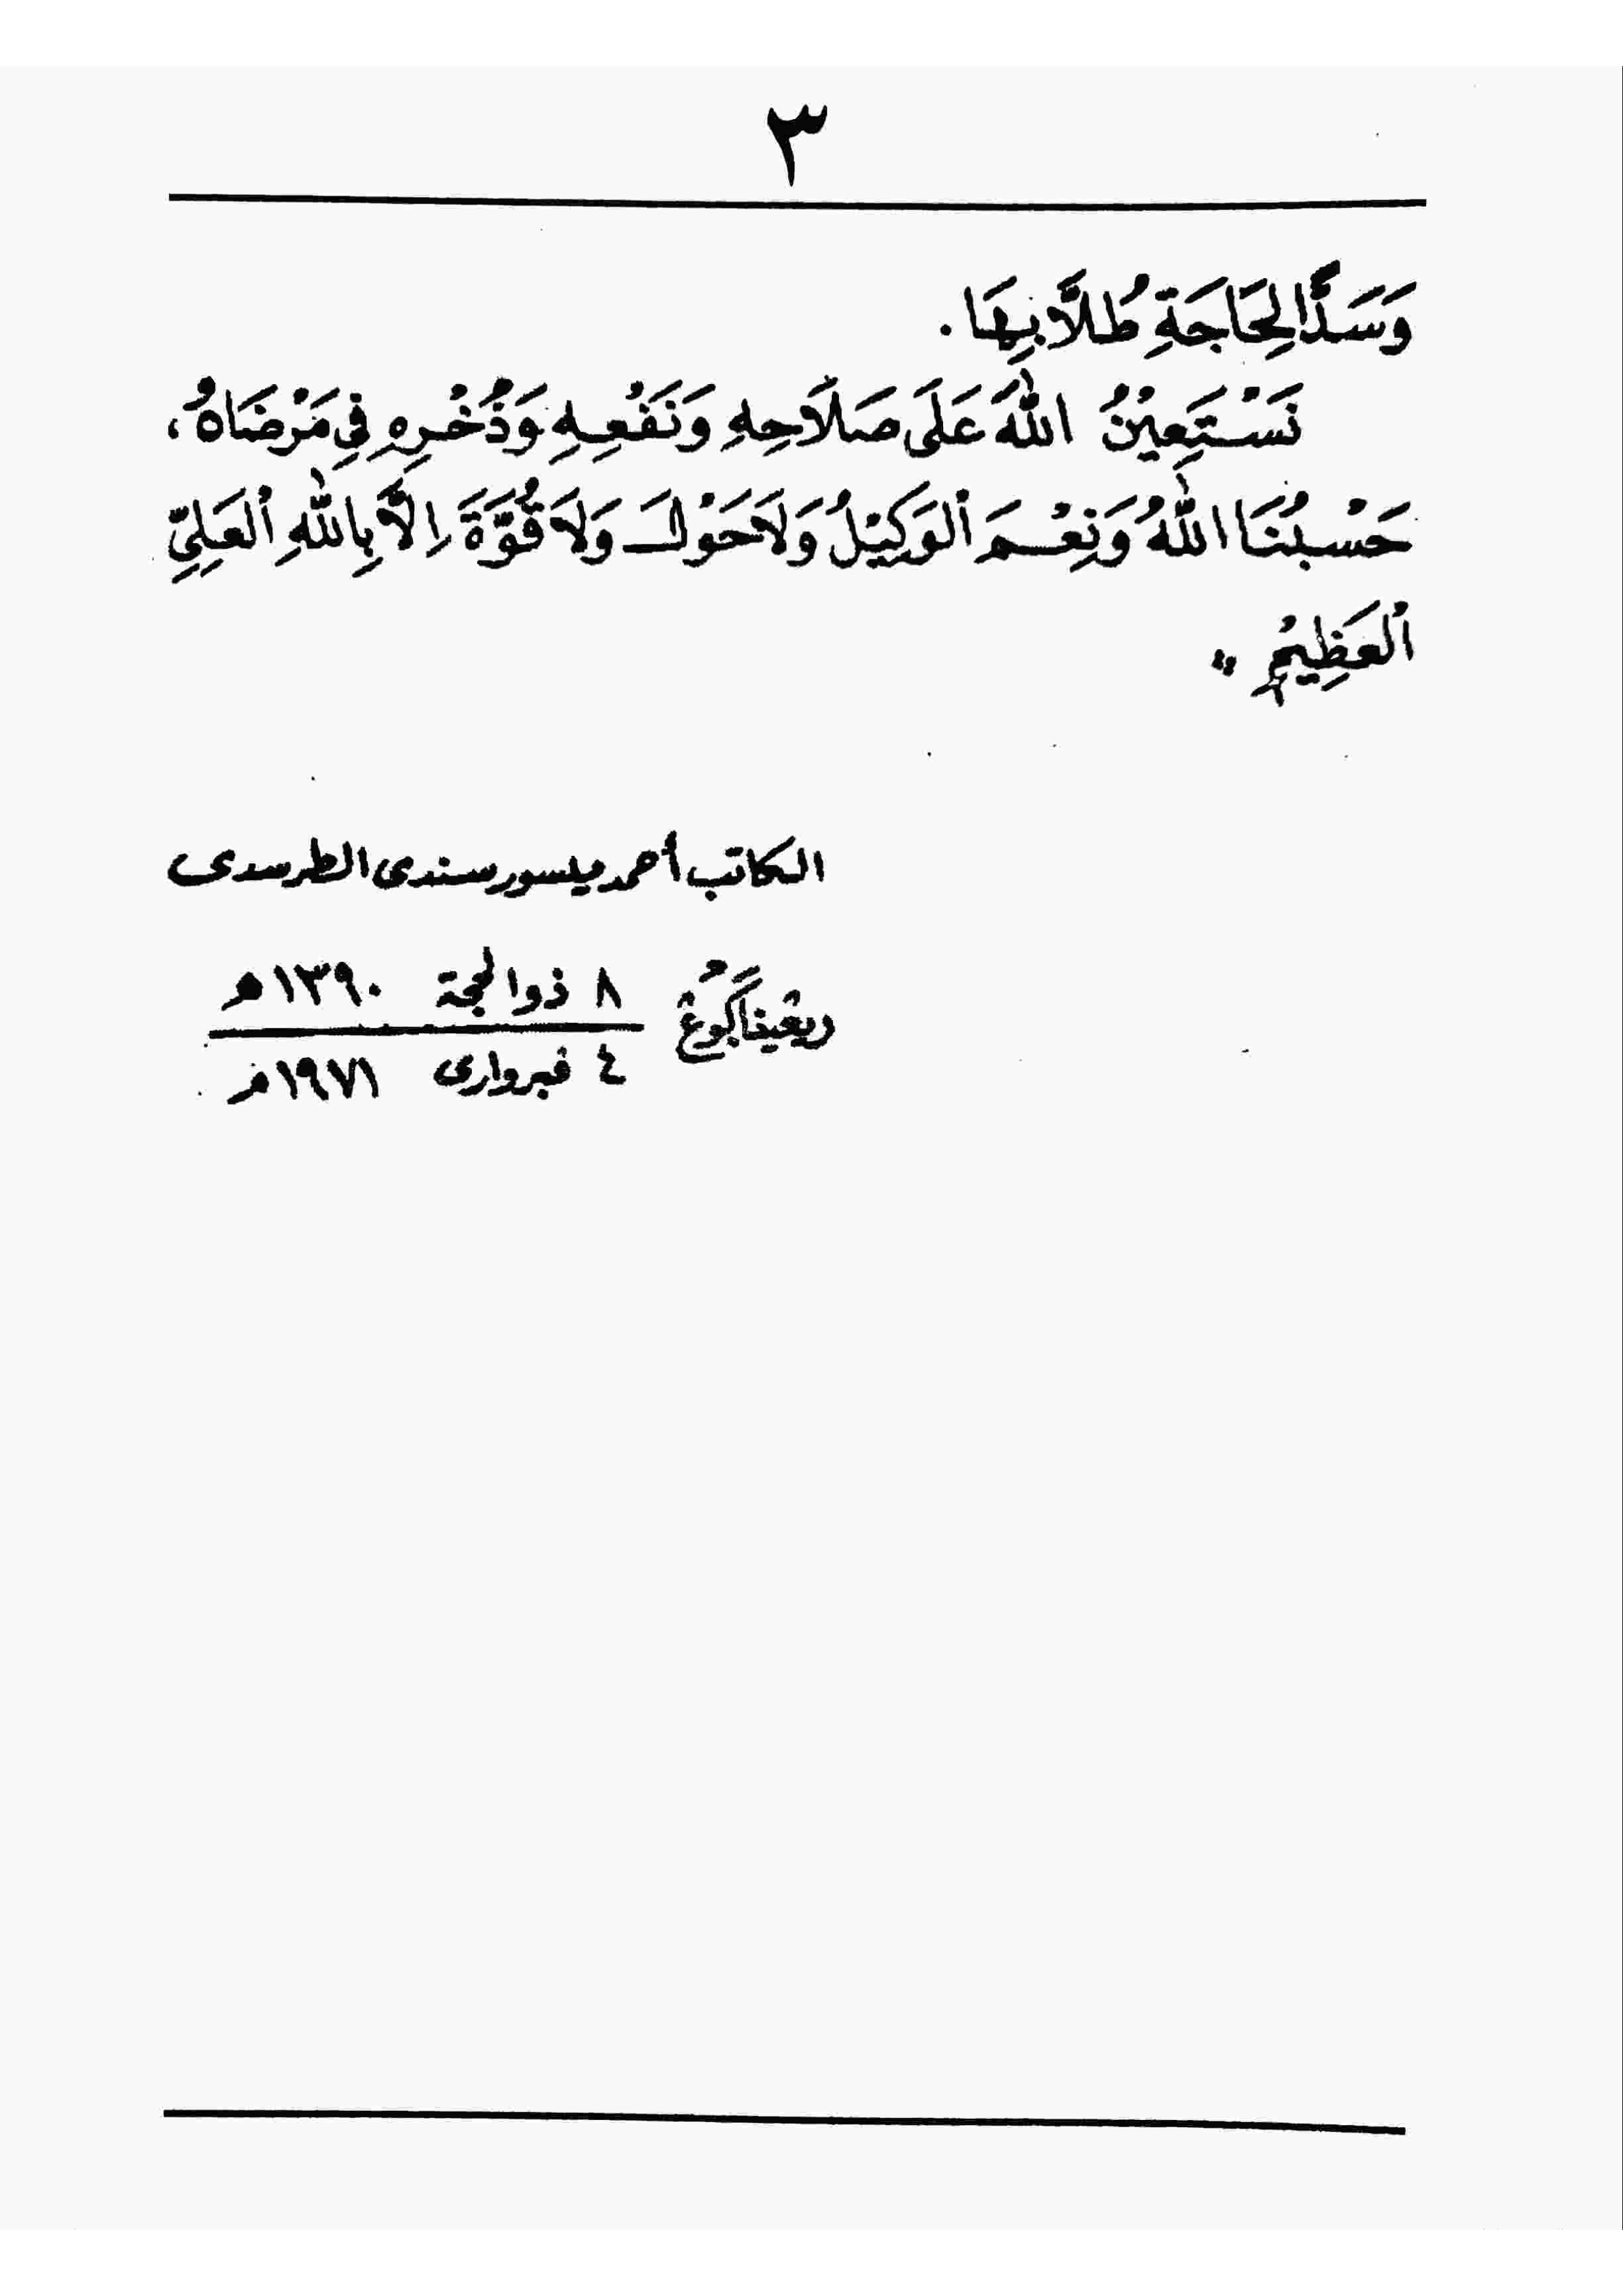 ٣
وَسَدًّا لِحَاجَةِ طُلَّابِهَا.
نَسْتَعِيْنُ اللّٰهَ عَلَى صَلَاحِهِ وَنَفْعِهِ وَذُخْرِهِ فِي مَرْضَاهُ،
حَسْبُنَا اللّٰهُ وَنِعْمَ الْوَكِيْلُ وَلَا حَوْلَ وَلَا قُوَّةَ اِلَّا بِاللّٰهِ الْعَلِيِّ
الْعَظِيْمِ
الكاتب أحمد ميسور سندى الطرسدى
٨ ذوالحجة ١٣٩٠ هـ
٤ فبروارى ١٩٧١ م